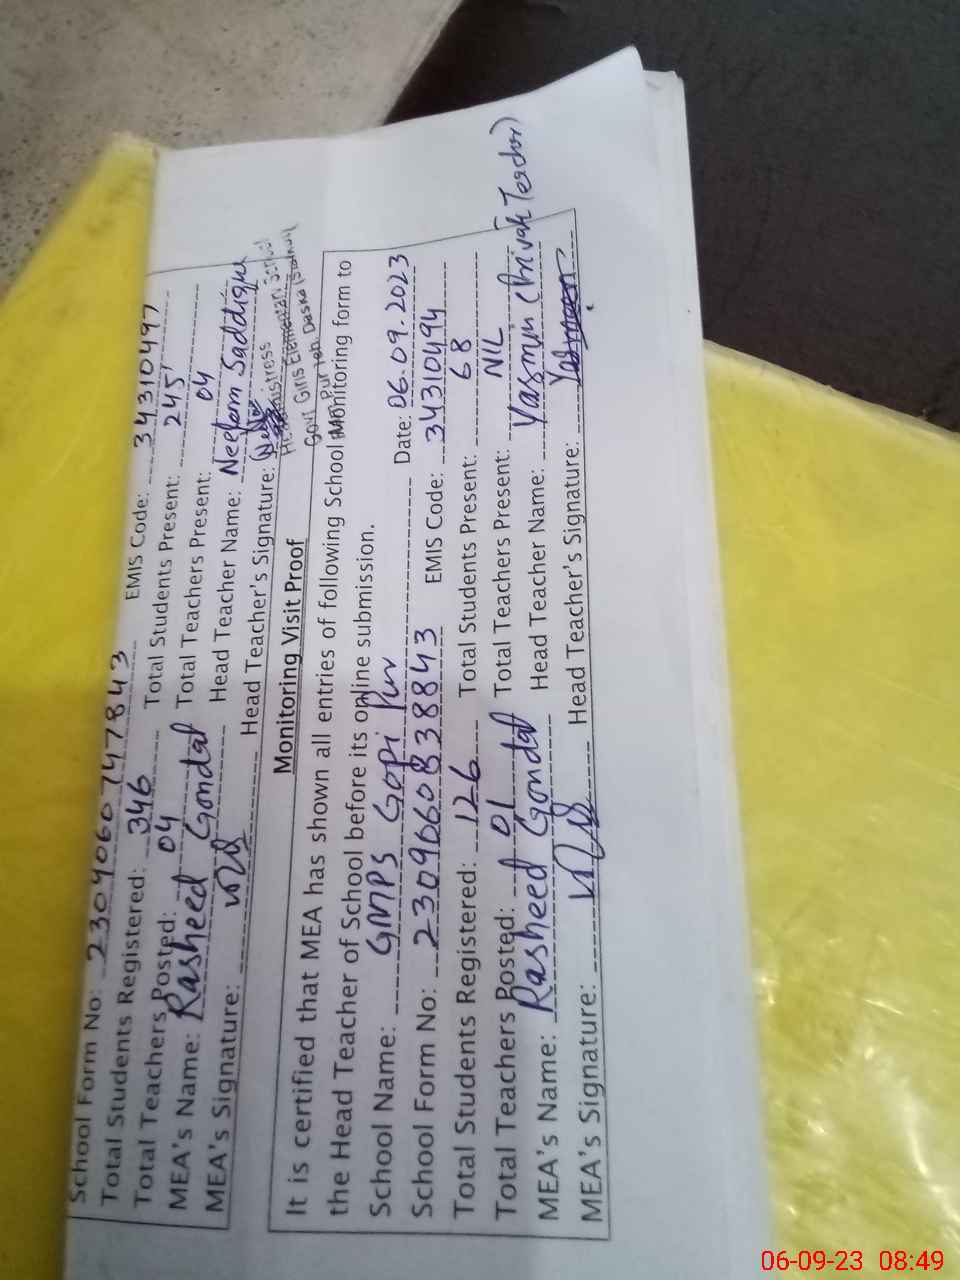 School Form No: 2309060747843 EMIS Code: 34310497
Total Students Registered: 346 Total Students Present: 245
Total Teachers Posted: 04 Total Teachers Present: 04
MEA's Name: Rasheed Gondal Head Teacher Name: Neelem Saddiqua
MEA's Signature: Head Teacher's Signature:
Headmistress
Govt Girls Elementary School
Pur Teh. Daska
Monitoring Visit Proof
It is certified that MEA has shown all entries of following School Monitoring form to
the Head Teacher of School before its online submission.
School Name: GMPS Gopi Pur Date: 06.09.2023
School Form No: 2309060838843 EMIS Code: 34310494
Total Students Registered: 126 Total Students Present: 68
Total Teachers Posted: 01 Total Teachers Present: NIL
MEA's Name: Rasheed Gondal Head Teacher Name: Yasmin (Privat Teacher)
MEA's Signature: Head Teacher's Signature: Yasmeen
06-09-23 08:49